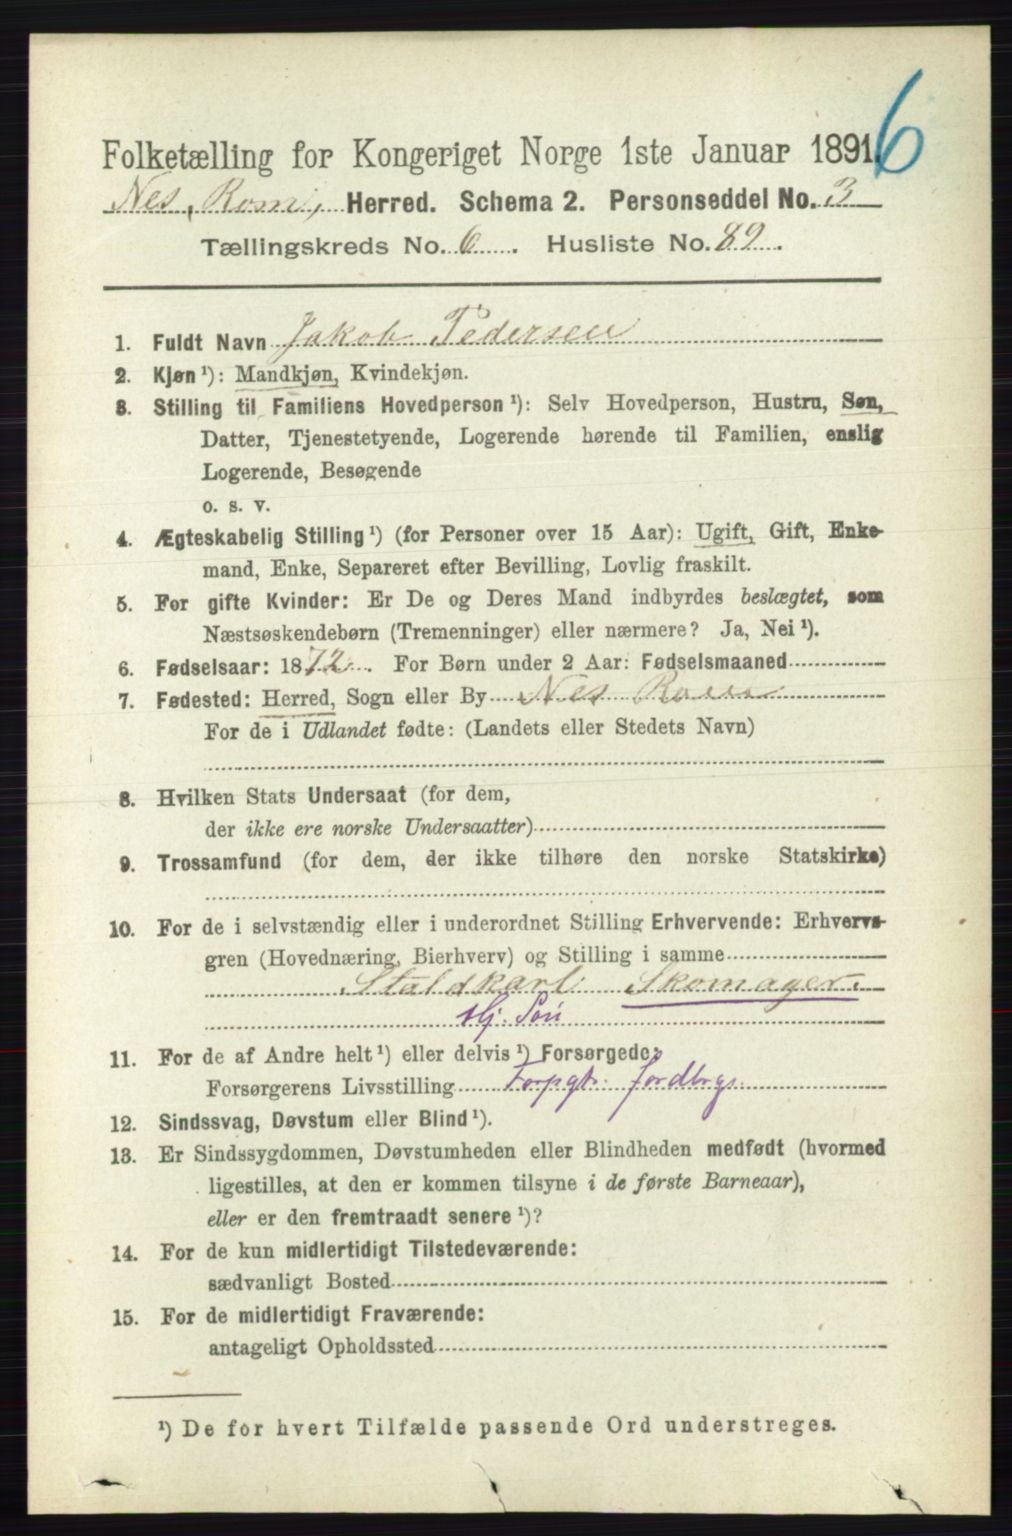 6
Folketælling for Kongeriget Norge 1ste Januar 1891.
Nes, Rom, Herred. Schema 2. Personseddel No. 3
Tællingskreds No. 6. Husliste No. 89.
1. Fuldt Navn Jakob Pedersen
2. Kjøn ¹): Mandkjøn, Kvindekjøn.
3. Stilling til Familiens Hovedperson ¹): Selv Hovedperson, Hustru, Søn,
Datter, Tjenestetyende, Logerende hørende til Familien, enslig
Logerende, Besøgende
o. s. v.
4. Ægteskabelig Stilling ¹) (for Personer over 15 Aar): Ugift, Gift, Enke-
mand, Enke, Separeret efter Bevilling, Lovlig fraskilt.
5. For gifte Kvinder: Er De og Deres Mand indbyrdes beslægtet, som
Næstsøskendebørn (Tremenninger) eller nærmere? Ja, Nei ¹).
6. Fødselsaar: 1872. For Børn under 2 Aar: Fødselsmaaned
7. Fødested: Herred, Sogn eller By Nes Rom
For de i Udlandet fødte: (Landets eller Stedets Navn)
8. Hvilken Stats Undersaat (for dem,
der ikke ere norske Undersaatter)
9. Trossamfund (for dem, der ikke tilhøre den norske Statskirke)
10. For de i selvstændig eller i underordnet Stilling Erhvervende: Erhvervs-
gren (Hovednæring, Bierhverv) og Stilling i samme
Staldkarl Skomager.
Hj. Søn
11. For de af Andre helt ¹) eller delvis ¹) Forsørgede:
Forsørgerens Livsstilling Forpgtr. Jordbrgs.
12. Sindssvag, Døvstum eller Blind ¹).
13. Er Sindssygdommen, Døvstumheden eller Blindheden medfødt (hvormed
ligestilles, at den er kommen tilsyne i de første Barneaar),
eller er den fremtraadt senere ¹)?
14. For de kun midlertidigt Tilstedeværende:
sædvanligt Bosted
15. For de midlertidigt Fraværende:
antageligt Opholdssted
¹) De for hvert Tilfælde passende Ord understreges.